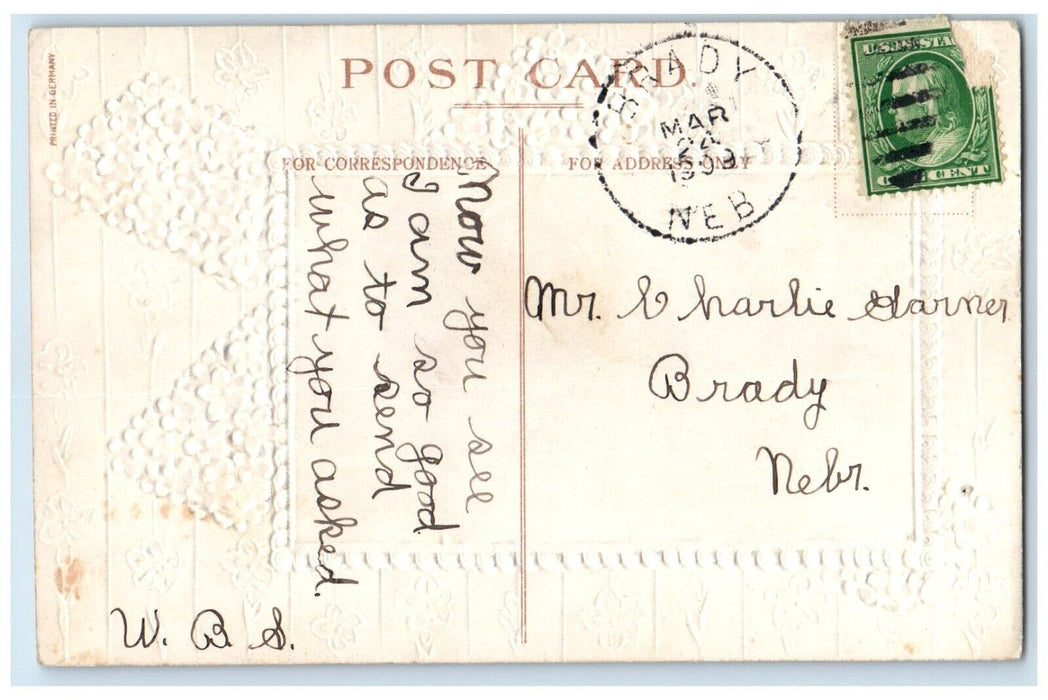 PRINTED IN GERMANY
POST CARD.
BRADY
MAR
1909
NEB
U.S. POSTAGE
CENT
FOR CORRESPONDENCE
FOR ADDRESS ONLY
Now you see
I am so good
as to send
what you asked.
W. B. S.
Mr. Charlie Garner
Brady
Nebr.